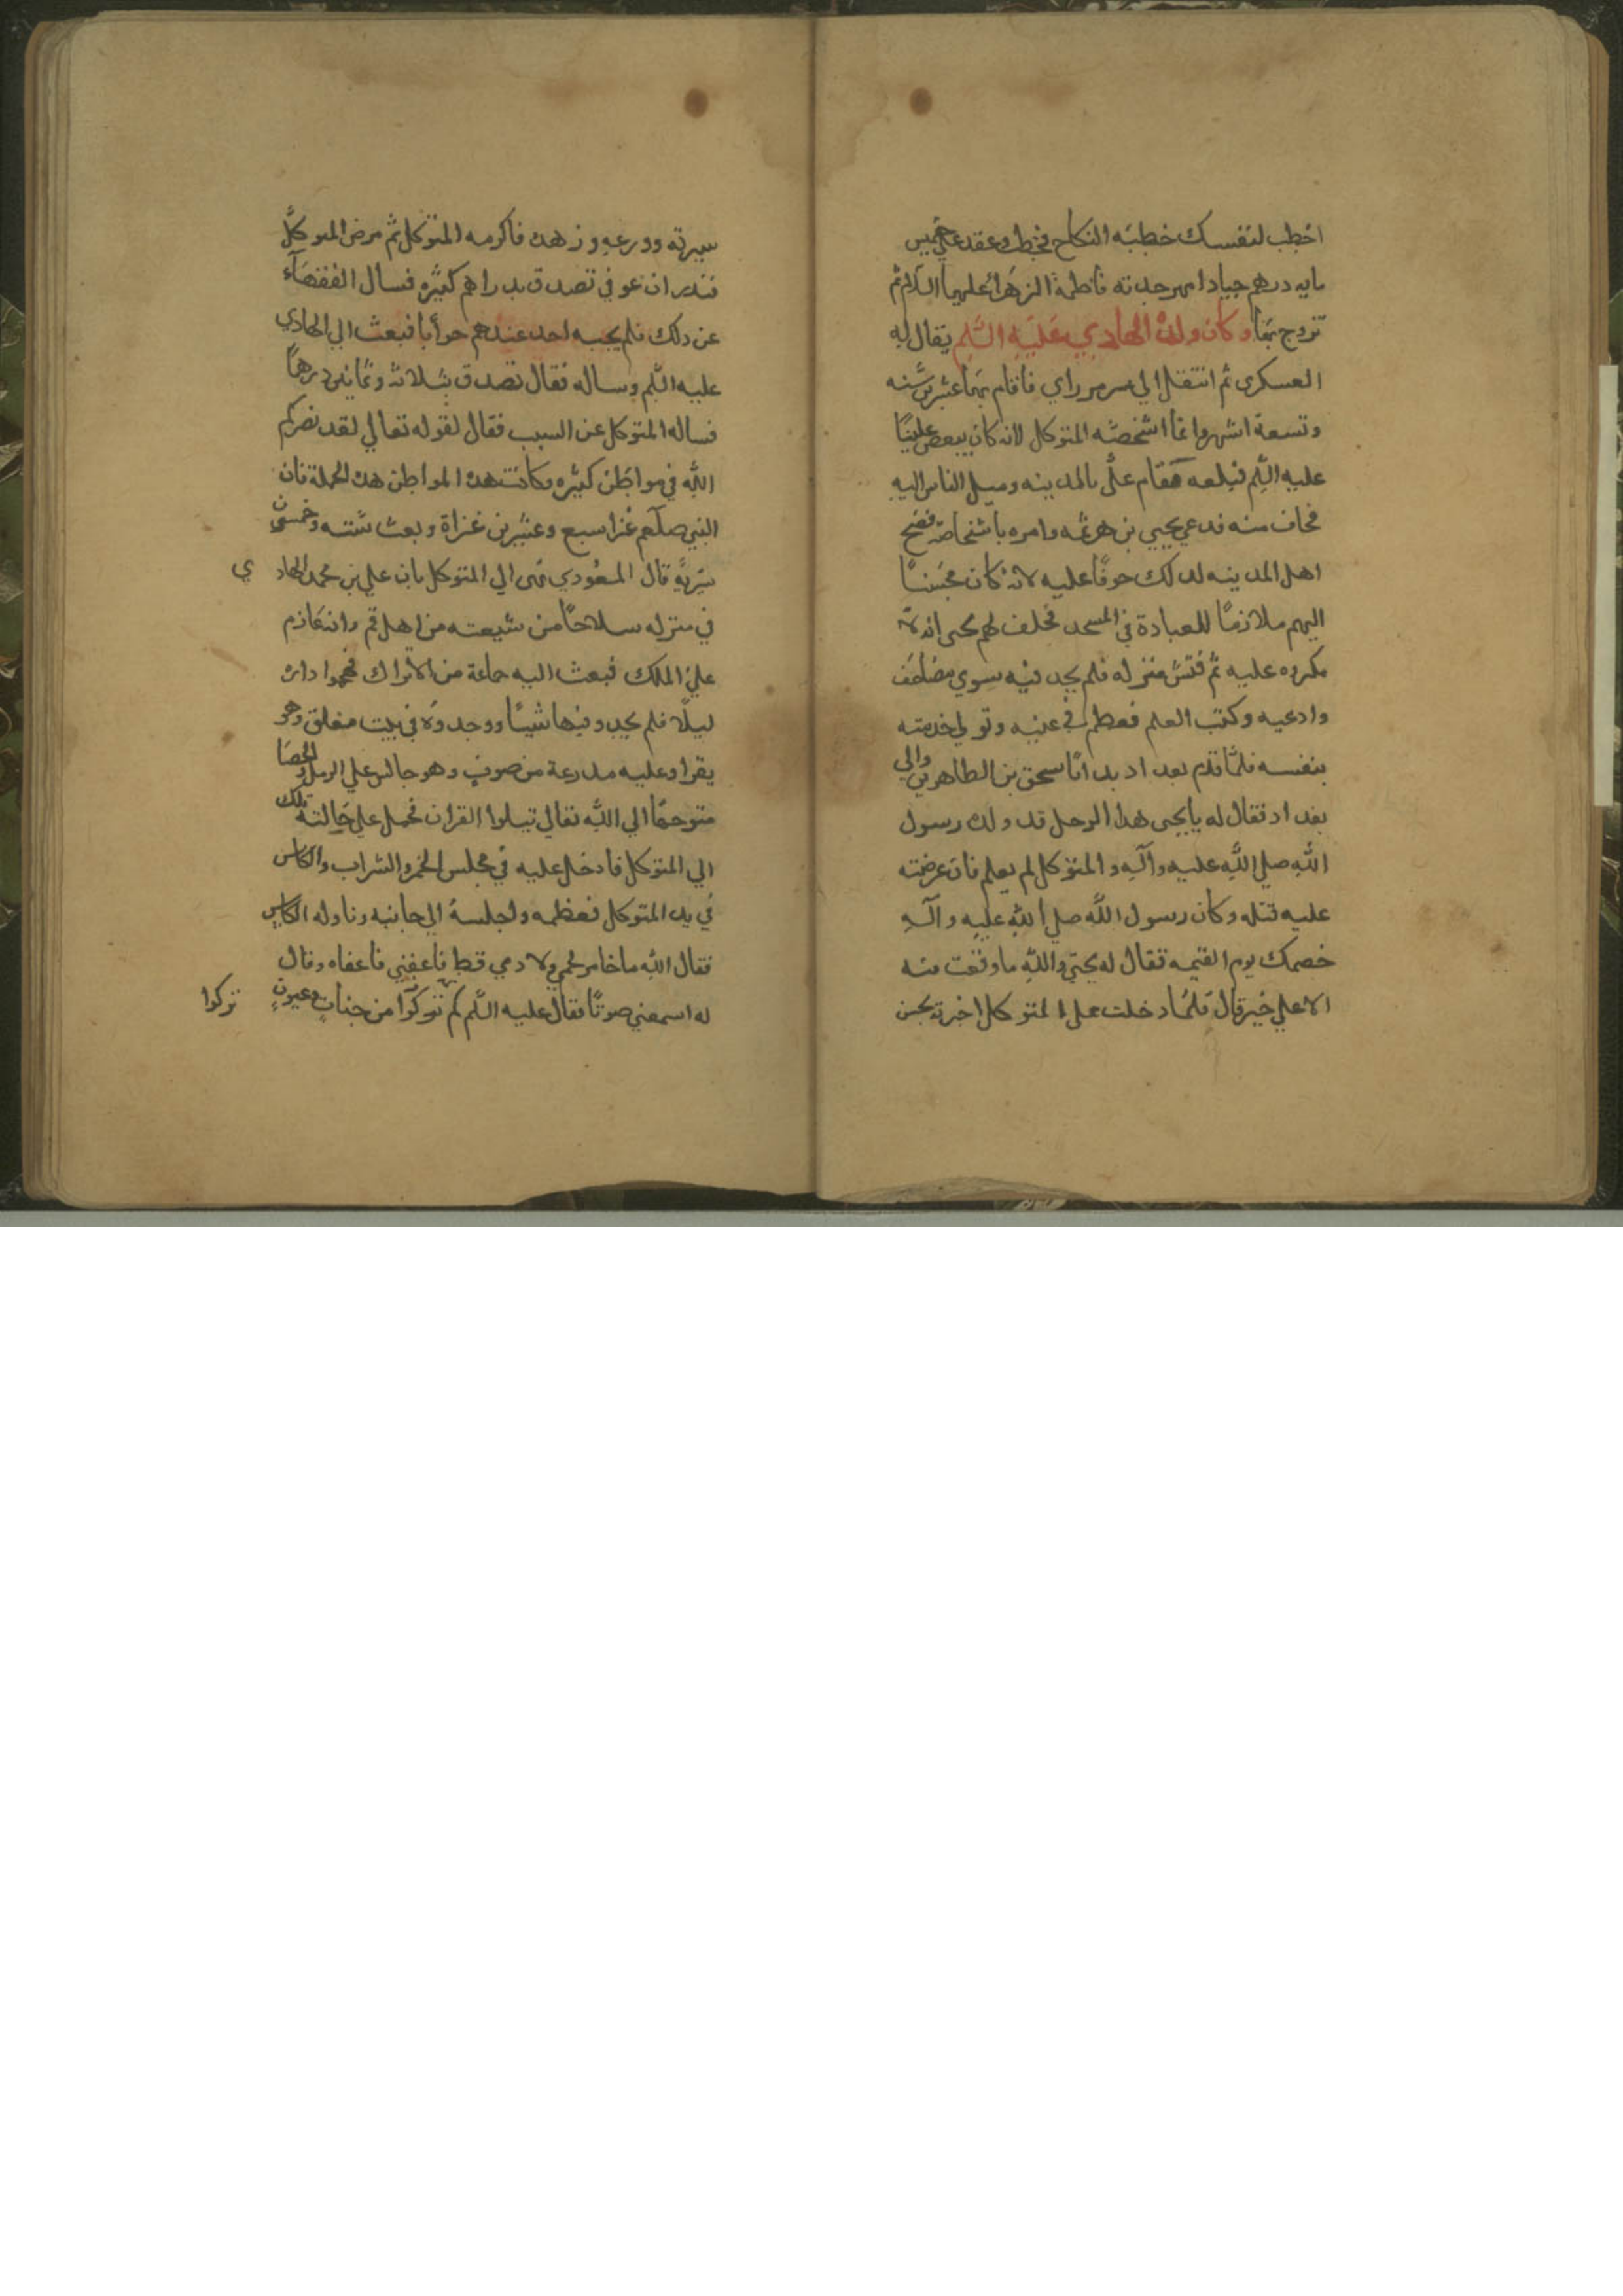 اخطب لنفسك خطبة النكاح فخطب وعقد علي خمس
مايه درهم جيادا مهر جدته فاطمة الزهراء عليها السلام ثم
تزوج بها وكان ولده الهادي عليه السلم يقال له
العسكرى ثم انتقل الي سر من راي فاقام بها عشرين سنه
وتسعة اشهر وانما اشخصه المتوكل لانه كان يبغض عليا
عليه السلم فبلغه مقام على بالمدينه وميل الناس اليه
فخاف منه فدعي يحيي بن هرثمه وامره باشخاصه فضج
اهل المدينه لدلك خوفا عليه لانه كان محسنا
اليهم ملازما للعبادة في المسجد فحلف لهم يحيى انه لا
مكروه عليه ثم فتش منزله فلم يجد فيه سوي مصاحف
وادعيه وكتب العلم فعظم في عينيه وتولي خدمته
بنفسه فلما قدم بغداد بدا باسحق بن الطاهري والي
بغداد فقال له يا يحيى هدا الرجل قد ولده رسول
الله صلي الله عليه وآله والمتوكل لم يعلم فان عرضته
عليه قتله وكان رسول الله صلي الله عليه وآله
خصمك يوم القيمه فقال له يحيي والله ما وقعت منه
الا علي خير قال فلما دخلت على المتوكل اخبرته بحسن
سيرته وورعه وزهده فاكرمه المتوكل ثم مرض المتوكل
فندر ان عوفي تصدق بدراهم كثيره فسأل الفقهاء
عن دلك فلم يجبه احد عندهم جوابا فبعث الي الهادي
عليه السلم وساله فقال تصدق بثلاثه وثمانين درهما
فساله المتوكل عن السبب فقال لقوله تعالي لقد نصركم
الله في مواطن كثيره وكانت هده المواطن هده الجملة فان
النبي صلعم غزا سبع وعشرين غزاة وبعث ستته وخمسون
سرية قال المسعودي نمى الي المتوكل بان علي بن محمد الهادي
في منزله سلاحا من شيعته من اهل قم وانه عازم
علي الملك فبعث اليه جماعة من الاتراك فهجموا داره
ليلا فلم يجدو فيها شيا ووجدوه في بيت مغلق وهو
يقرا وعليه مدرعة من صوف وهو جالس علي الرمل والحصا
متوجها الي الله تعالي تيلوا القران فحمل علي حالته تلك
الي المتوكل فادخل عليه في مجلس الخمر والشراب والكاس
في يد المتوكل فعظمه واجلسه الي جانبه وناوله الكاس
فقال الله ما خامر لحمي ولا دمي قط فاعفني فاعفاه وقال
له اسمعني صوتا فقال عليه السلم كم تركوا من جنات وعيون
تركوا